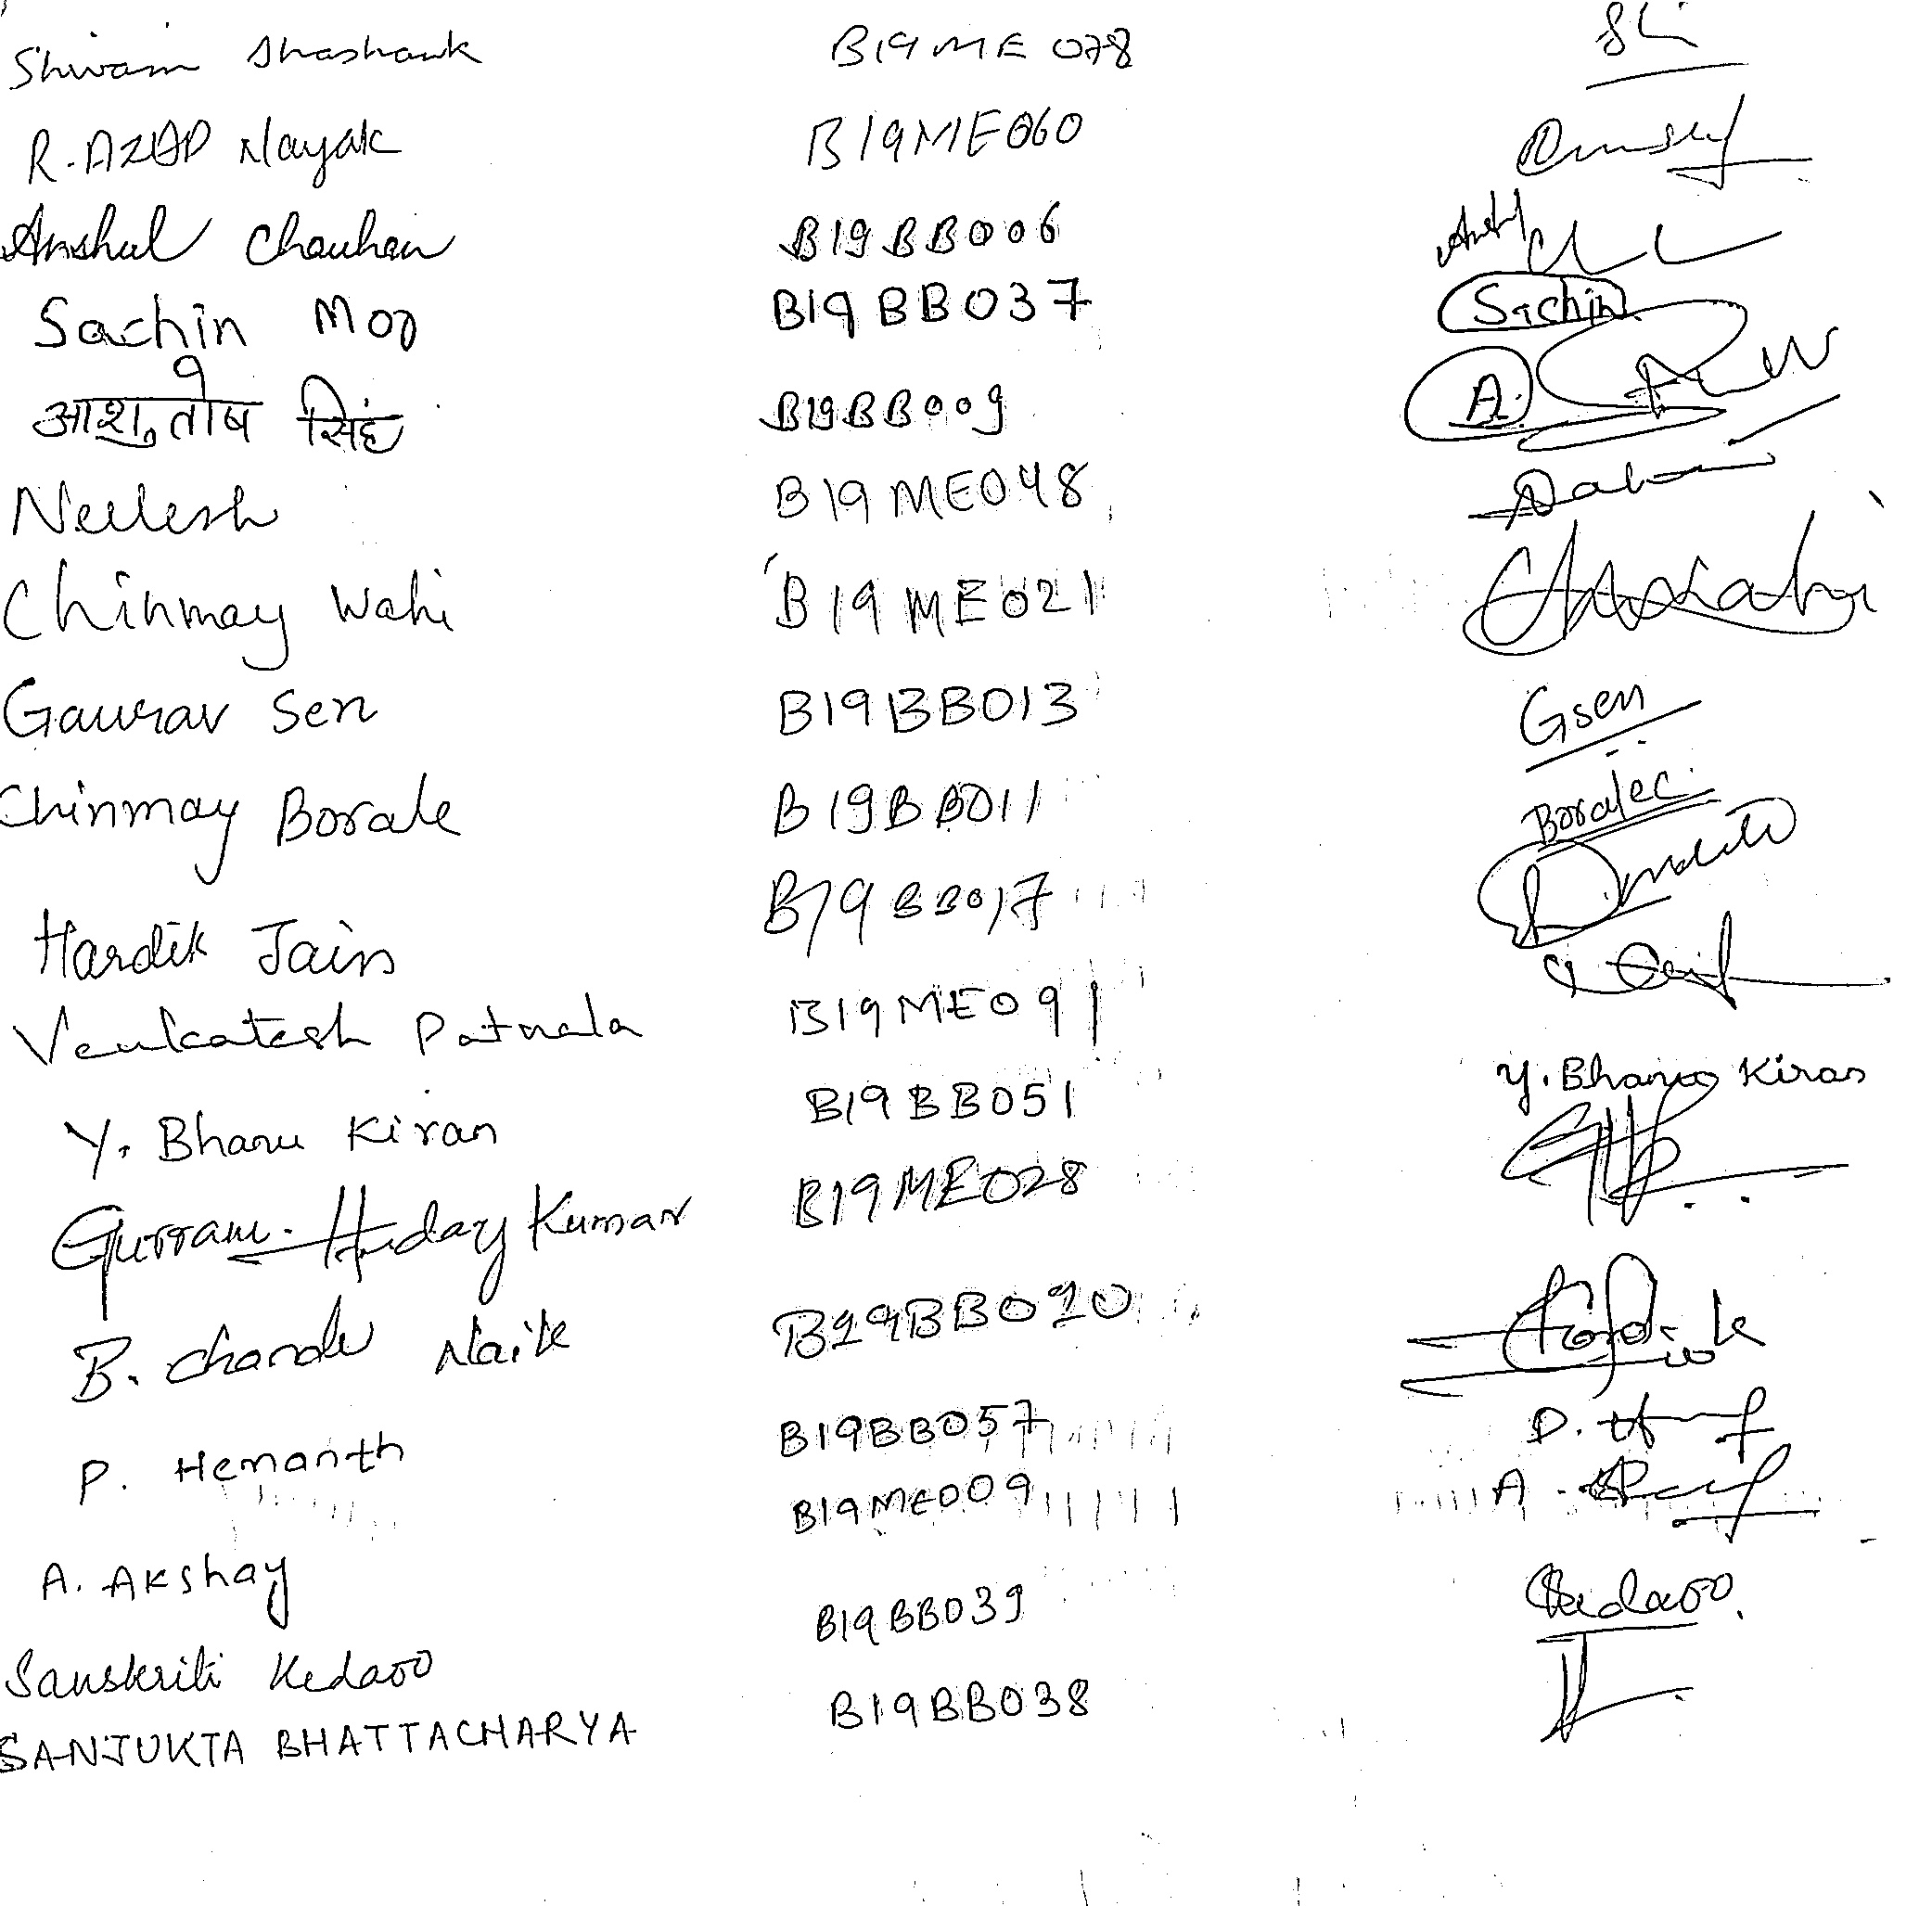 Shivam Shashank B19ME078
R. AZAD Nayak B19ME060
Anshul Chauhan B19BB006
Sachin Mor B19BB037 Sachin
आशुतोष सिंह B19BB009 A.
Neelesh B19ME048
Chinmay Wahi B19ME021
Gaurav Sen B19BB013 Gsen
Chinmay Borale B19BB011 Boralec
Hardik Jain B19BB017
Venkatesh Patnala B19ME091
Y. Bhanu Kiran B19BB051 Y. Bhanu Kiran
Gurram. Huday Kumar B19ME028
B. Chandu Naik B19BB010
P. Hemanth B19BB057
A. Akshay B19ME009
Sanskriti Kedaoo B19BB039 Kedaoo
SANJUKTA BHATTACHARYA B19BB038